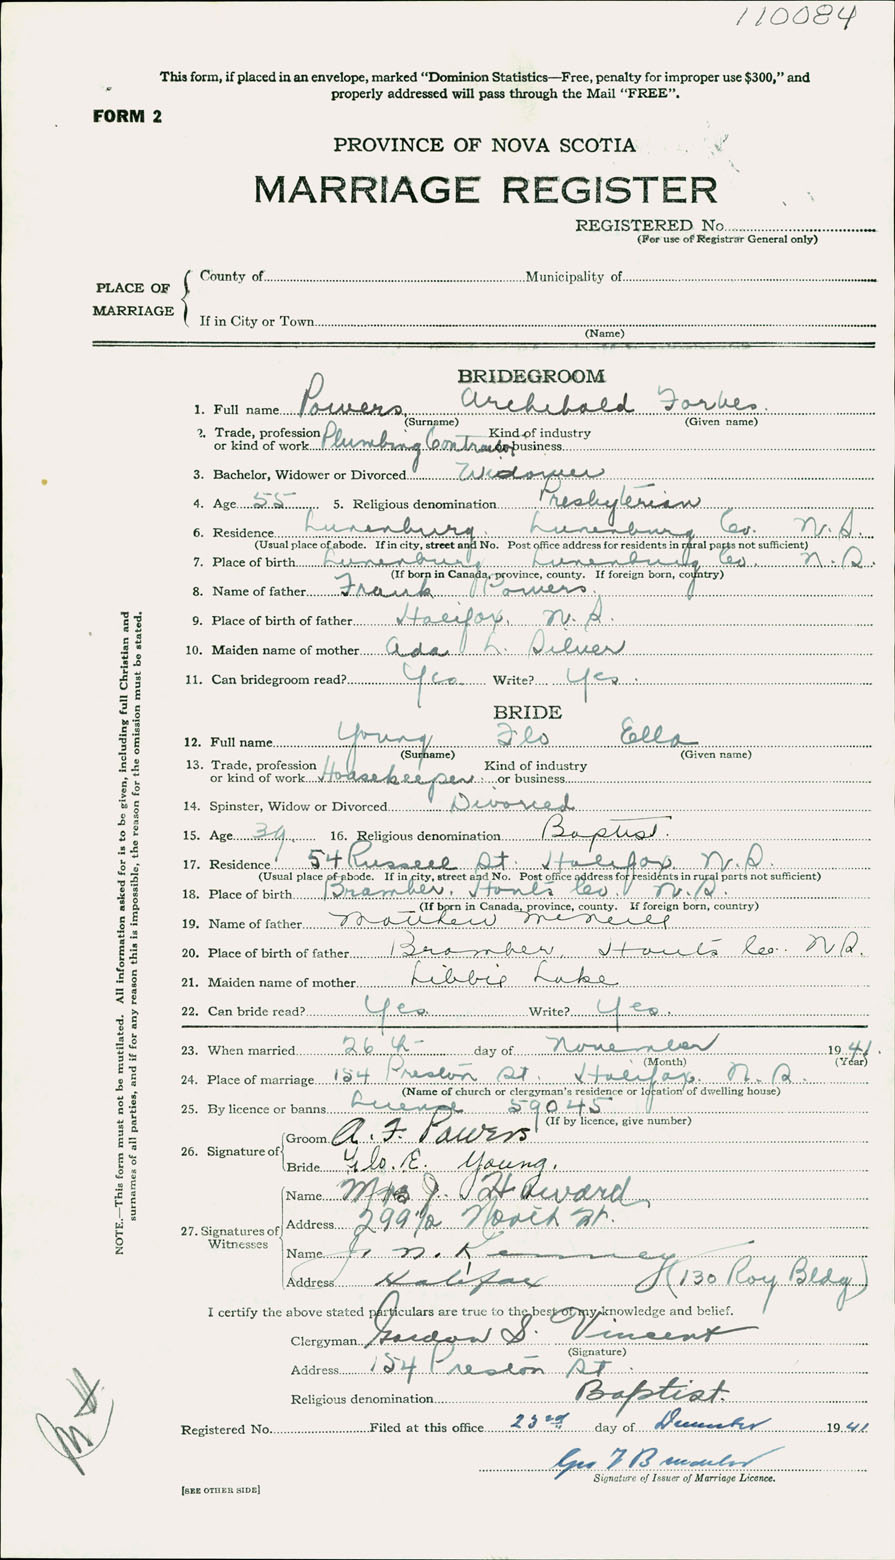 110084
This form, if placed in an envelope, marked "Dominion Statistics—Free, penalty for improper use $300," and
properly addressed will pass through the Mail "FREE".
FORM 2
PROVINCE OF NOVA SCOTIA
MARRIAGE REGISTER
REGISTERED No.
(For use of Registrar General only)
PLACE OF MARRIAGE
County of Municipality of
If in City or Town
(Name)
BRIDEGROOM
1. Full name Powers, Archibald Forbes.
(Surname) (Given name)
2. Trade, profession or kind of work Plumbing Contractor Kind of industry or business
3. Bachelor, Widower or Divorced Widower
4. Age 55 5. Religious denomination Presbyterian
6. Residence Lunenburg. Lunenburg Co. N.S.
(Usual place of abode. If in city, street and No. Post office address for residents in rural parts not sufficient)
7. Place of birth Lunenburg Lunenburg Co. N.S.
(If born in Canada, province, county. If foreign born, country)
8. Name of father Frank Powers.
9. Place of birth of father Halifax, N.S.
10. Maiden name of mother Ada L. Silver
11. Can bridegroom read? Yes Write? Yes.
BRIDE
12. Full name Young Flo Ella
(Surname) (Given name)
13. Trade, profession or kind of work Housekeeper Kind of industry or business
14. Spinster, Widow or Divorced Divorced
15. Age 39 16. Religious denomination Baptist.
17. Residence 54 Russell St. Halifax, N.S.
(Usual place of abode. If in city, street and No. Post office address for residents in rural parts not sufficient)
18. Place of birth Bramber, Hants Co. N.S.
(If born in Canada, province, county. If foreign born, country)
19. Name of father Matthew McNeill
20. Place of birth of father Bramber, Hants Co. N.S.
21. Maiden name of mother Libbie Lake
22. Can bride read? Yes. Write? Yes.
23. When married 26th day of November 1941.
(Month) (Year)
24. Place of marriage 154 Preston St. Halifax. N.S.
(Name of church or clergyman's residence or location of dwelling house)
25. By licence or banns License 59045
(If by licence, give number)
26. Signature of
Groom A. F. Powers
Bride Flo. E. Young.
27. Signatures of Witnesses
Name Mrs J. Howard
Address 299½ North St.
Name N. Kenney
Address Halifax (130 Roy Bldg)
I certify the above stated particulars are true to the best of my knowledge and belief.
Clergyman Gordon S. Vincent
(Signature)
Address 154 Preston St.
Religious denomination Baptist.
Registered No. Filed at this office 23rd day of December 1941
Geo
Signature of Issuer of Marriage Licence.
[SEE OTHER SIDE]
NOTE.—This form must not be mutilated. All information asked for is to be given, including full Christian and
surnames of all parties, and if for any reason this is impossible, the reason for the omission must be stated.